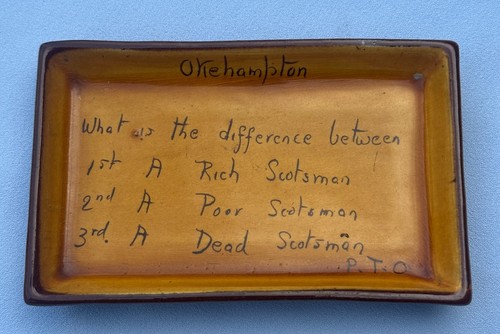 Okehampton
What is the difference between
1st A Rich Scotsman
2nd A Poor Scotsman
3rd. A Dead Scotsman
P.T.O